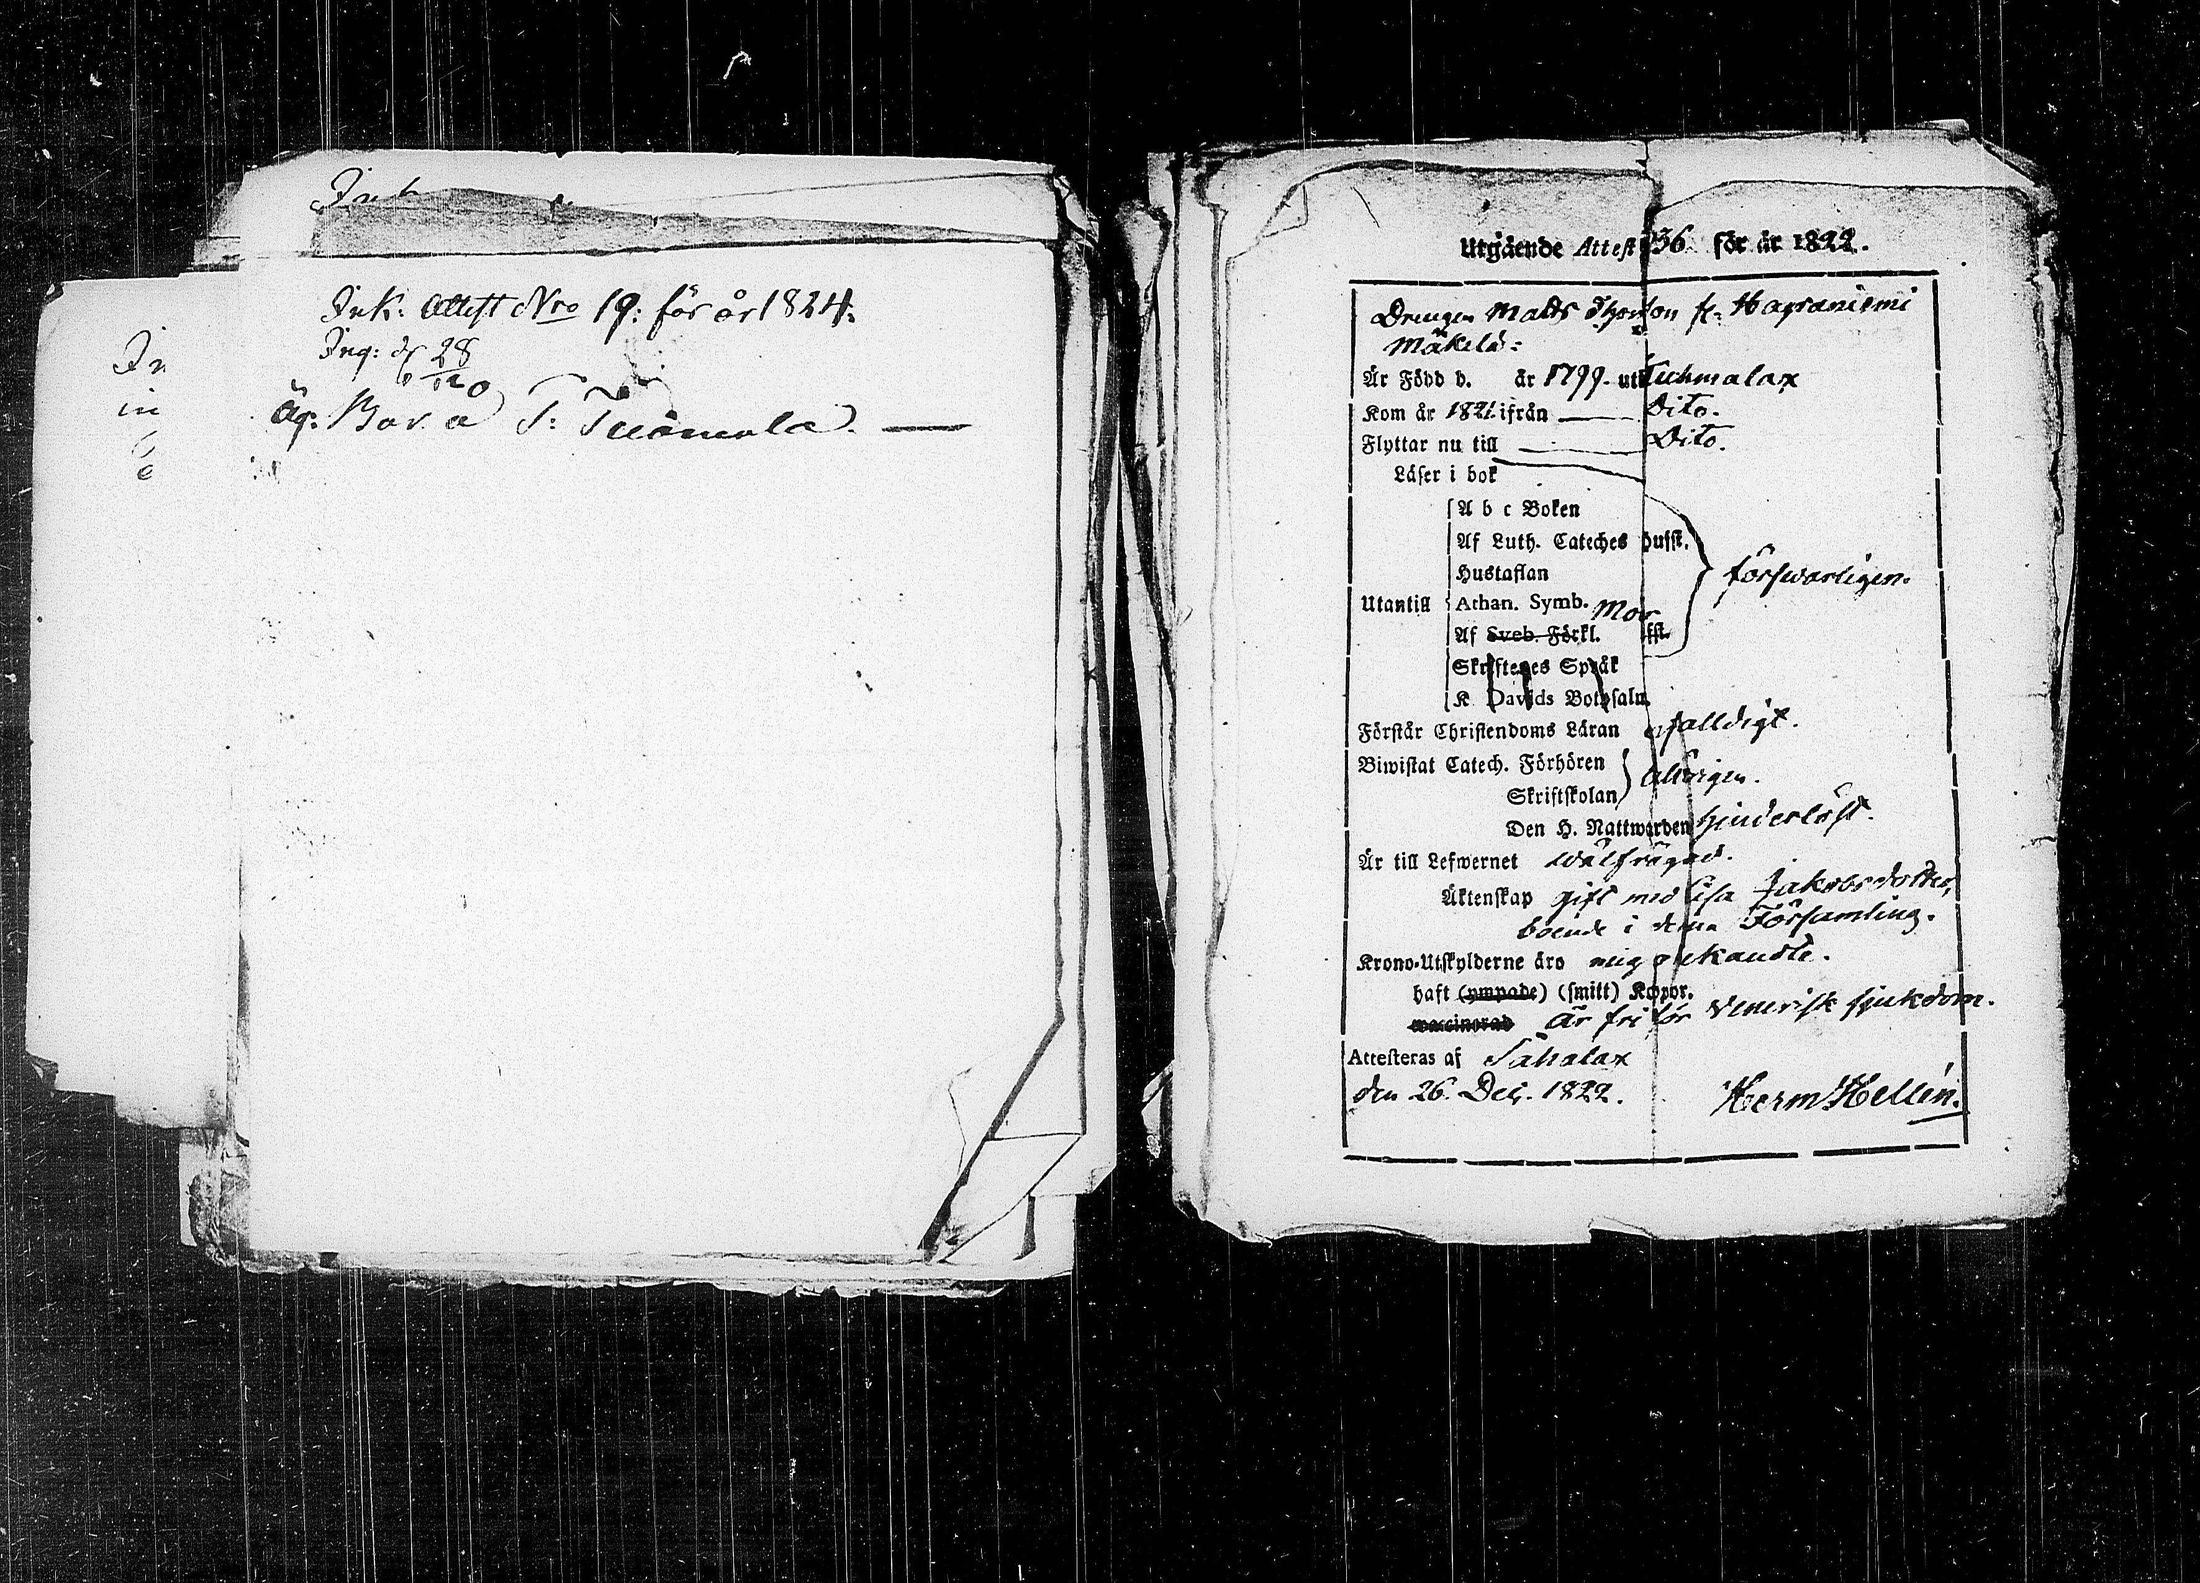 Ink
In
in
Ink: Attest Nro 19: för år 1824.
Ing: d 28/12
Äg: Bor a T: Tuomola.
Utgående Attest 136 för år 1822.
Drengen Matts fr: Hapaniemi
Mäkelä:
Är Född d. år 1799. uti Kuhmalax
Kom år 1821. ifrån Dito.
Flyttar nu till Dito.
Läser i bok
A b c Boken
Af Luth. Cateches Hufst.
Hustaflan
försvarligen.
Utantill Athan. Symb.
Mör
Af Sveb. Förkl. fst.
Skriftenes Språk
K Davids Botpsalm.
Förstår Christendoms Läran enfalldigt.
Biwistat Catech. Förhören
Skriftskolan
Den H. Nattwarden hinderlöst.
Är till Lefwernet wälfrägad.
Äktenskap gift med Lisa Jakobsdotter,
boende i denna Församling.
Krono-Utskylderne äro mig obekandte.
haft (ympade) (smitt) Koppor.
waccinerad Är fri för Venerisk sjukdom.
Attesteras af Sahalax
den 26. Dec. 1822. Herm Hellén.